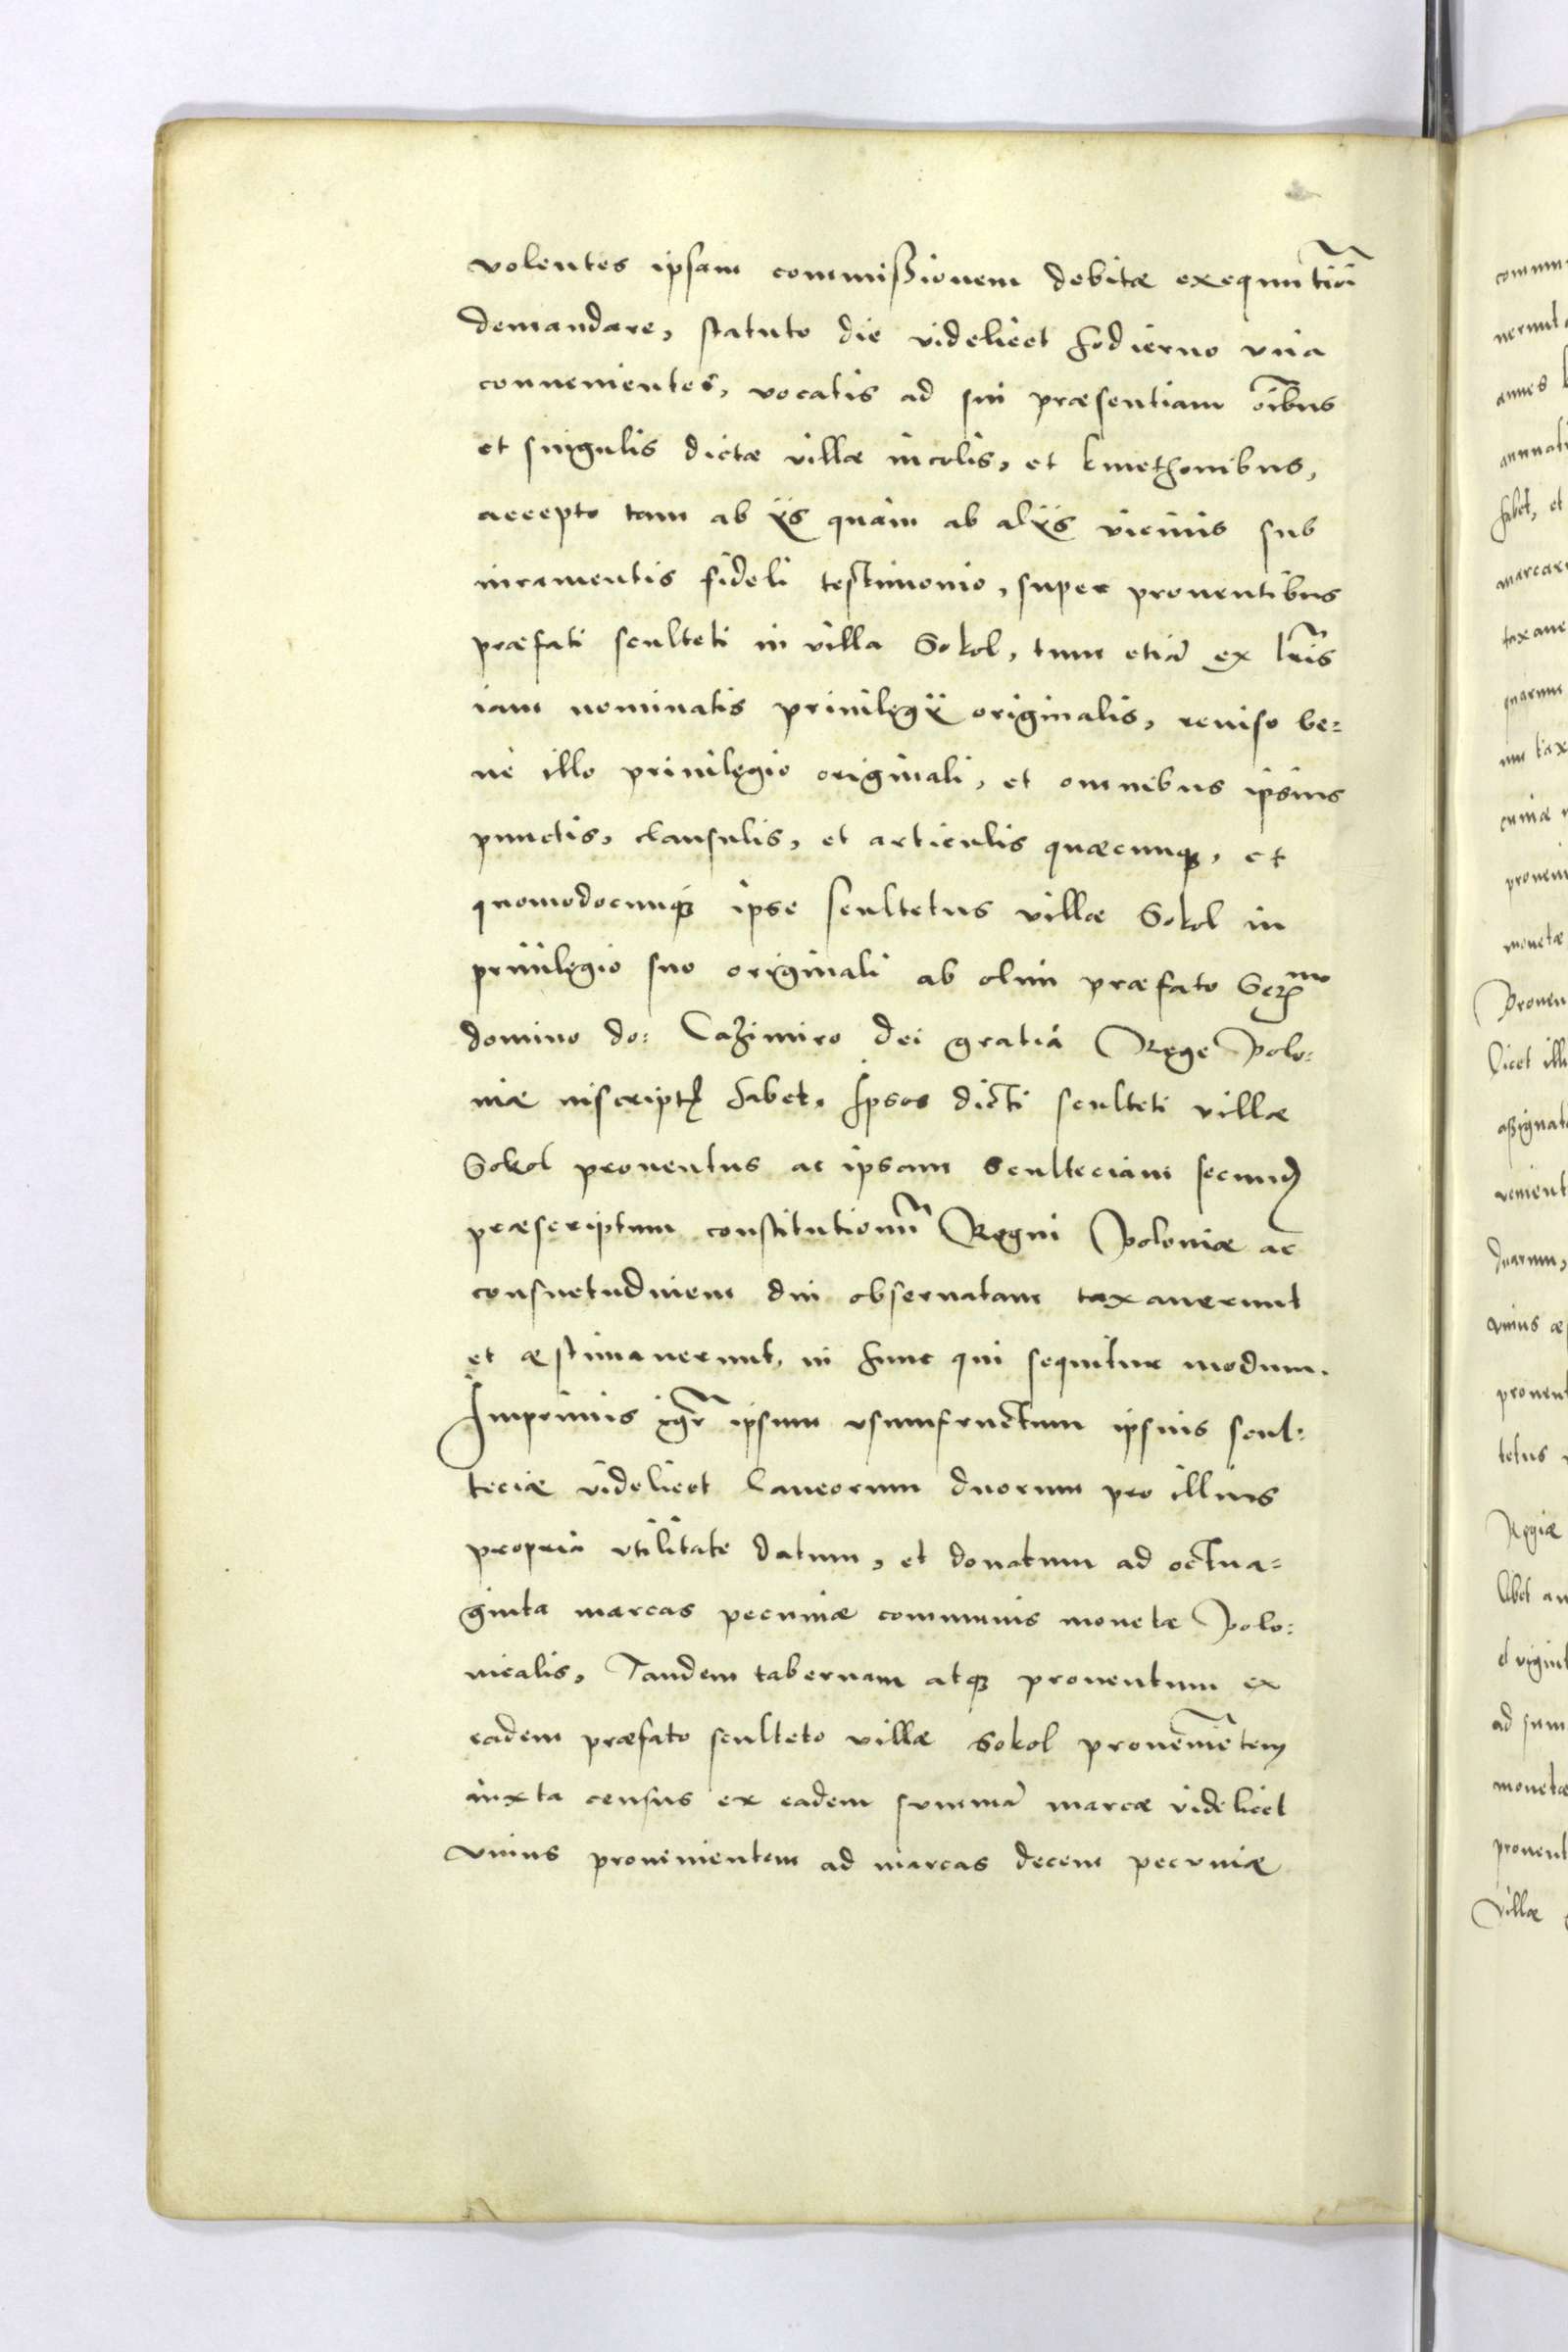 volentes ipsam commißionem debitæ exequutioni
demandare, statuto die videlicet hodierno vna
conuenientes, vocatis ad sui præsentiam oibus
et singulis dictæ villæ incolis, et kmethonibus,
accepto tam ab ijs quàm ab alijs vicinis sub
iuramentis fideli testimonio, super prouentibus
præfati sculteti in villa Sokol, tum etiã ex lris
iam nominatis priuilegij originalis, reuiso be=
ne illo priuilegio originali, et omnibus ipsius
punctis, clausulis, et articulis quæcunq3, et
quomodocunq3 ipse scultetus villæ Sokol in
priuilegio suo originali ab olim præfato Sermo
domino do: Cazimiro dei gratia Rege Polo=
niæ inscript habet. Ipsos dicti sculteti villæ
Sokol prouentus ac ipsam Sculteciam secund
præscriptum constitutionũ Regni Poloniæ ac
consuetudinem diu obseruatam taxauerunt
et æstimauerunt, in hunc qui sequitur modum.
Imprimis igr ipsum vsumfructum ipsius scul=
teciæ videlicet laneorum duorum pro illius
propria vtilitate datum, et donatum ad octua=
ginta marcas pecuniæ communis monetæ Polo=
nicalis, Tandem tabernam atq3 prouentum ex
eadem præfato sculteto villæ Sokol prouenietem
iuxta census ex eadem summã marcæ videlicet
vnius prouenientem ad marcas decem pecuniæ